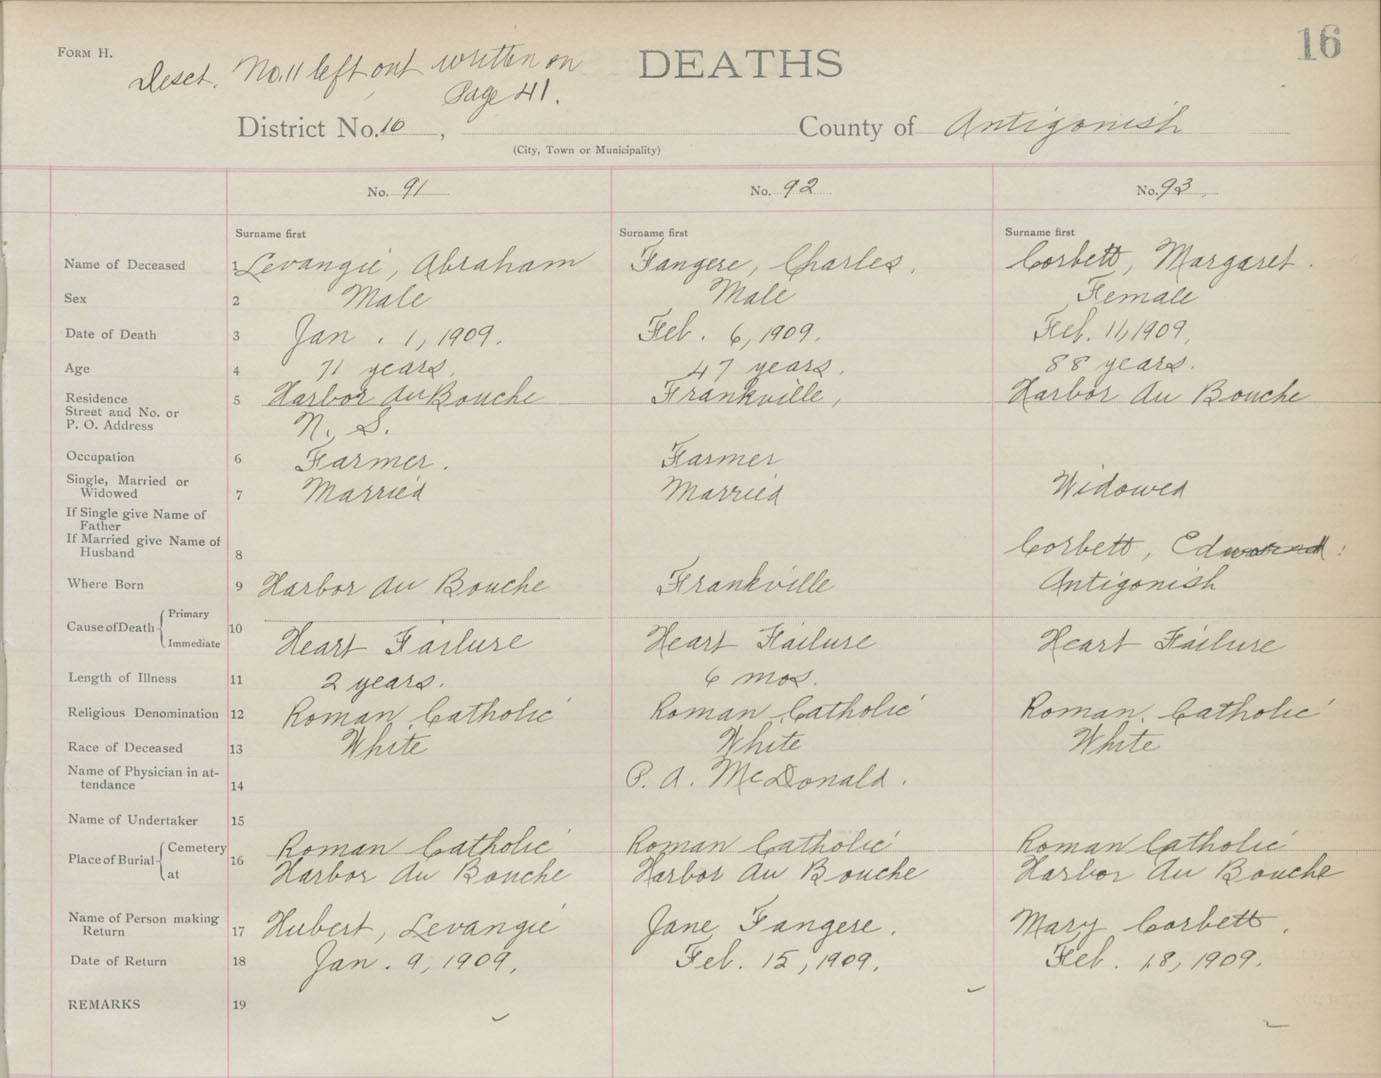 FORM H.
Desct. No. 11 left out written on
Page 41.
DEATHS
16
District No. 10,
County of Antigonish
(City, Town or Municipality)
No. 91
No. 92
No. 93.
Surname first
Surname first
Surname first
Name of Deceased 1 Levangie, Abraham
Fangere, Charles.
Corbett, Margaret.
Sex 2 Male
Male
Female
Date of Death 3 Jan. 1, 1909.
Feb. 6, 1909.
Feb. 11, 1909.
Age 4 71 years.
47 years.
88 years.
Residence
Street and No. or
P. O. Address
5 Harbor Au Bouche
N. S.
Frankville,
Harbor Au Bouche
Occupation 6 Farmer.
Farmer
Single, Married or
Widowed 7 Married
Married
Widowed
If Single give Name of
Father
If Married give Name of
Husband 8
Corbett, Edward.
Where Born 9 Harbor Au Bouche
Frankville
Antigonish
Cause of Death Primary
Immediate 10
Heart Failure
Heart Failure
Heart Failure
Length of Illness 11 2 years.
6 mos.
Religious Denomination 12 Roman Catholic
Roman Catholic
Roman Catholic
Race of Deceased 13 White
White
White
Name of Physician in at-
tendance 14
P. A. McDonald.
Name of Undertaker 15
Place of Burial Cemetery
at 16
Roman Catholic
Harbor Au Bouche
Roman Catholic
Harbor Au Bouche
Roman Catholic
Harbor Au Bouche
Name of Person making
Return 17 Hubert, Levangie
Jane Fangere.
Mary Corbett.
Date of Return 18 Jan. 9, 1909.
Feb. 15, 1909.
Feb. 18, 1909.
REMARKS 19